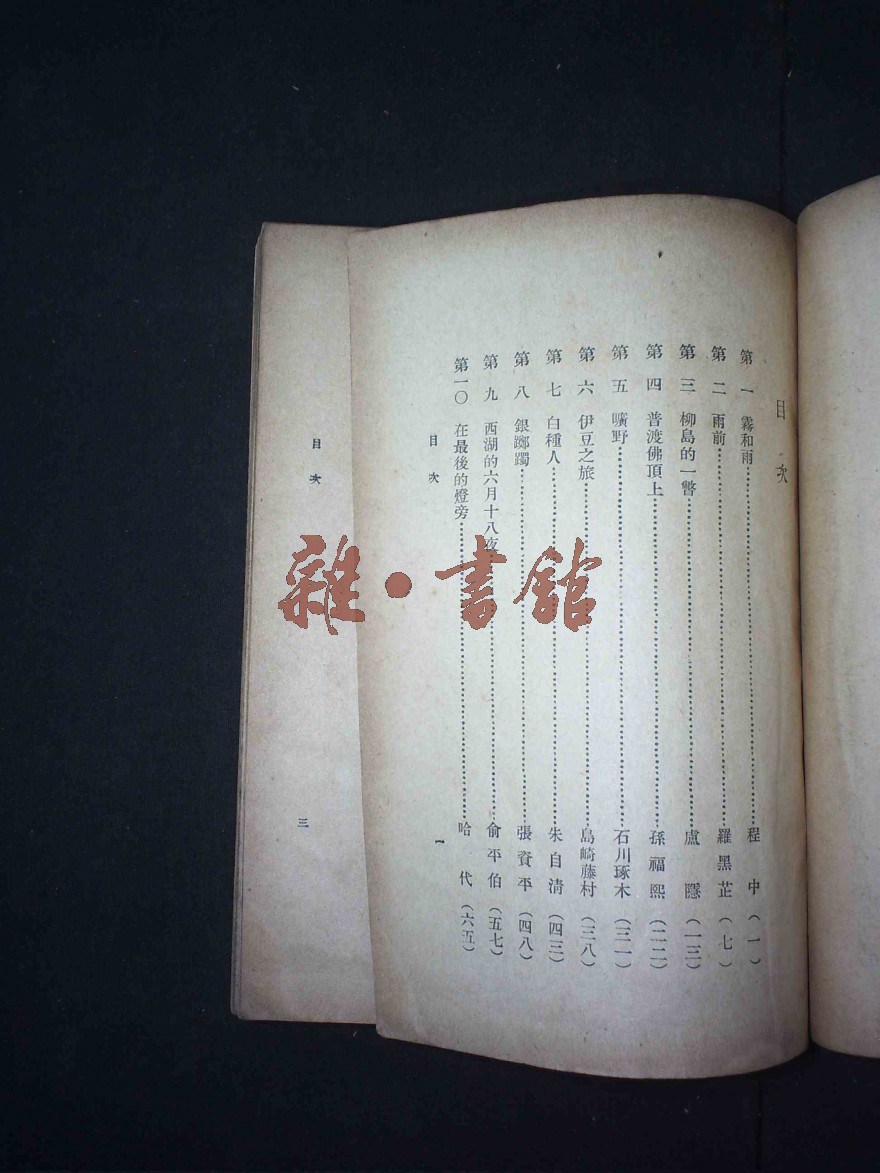 目次
第一 霧和雨 程中 (一)
第二 雨前 羅黑芷 (七)
第三 柳島的一瞥 盧隱 (一三)
第四 普渡佛頂上 孫福熙 (二二)
第五 曠野 石川琢木 (三一)
第六 伊豆之旅 島崎藤村 (三八)
第七 白種人 朱自清 (四三)
第八 銀躑躅 張資平 (四八)
第九 西湖的六月十八夜 俞平伯 (五七)
第一〇 在最後的燈旁 哈代 (六五)
目次 一
目次 三
雜·書館